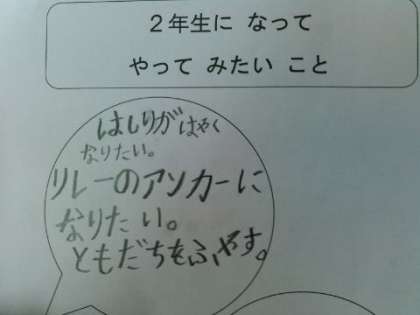 2年生に なって
やって みたい こと
はしりがはやく
なりたい。
リレーのアンカーに
なりたい。
ともだちをふやす。